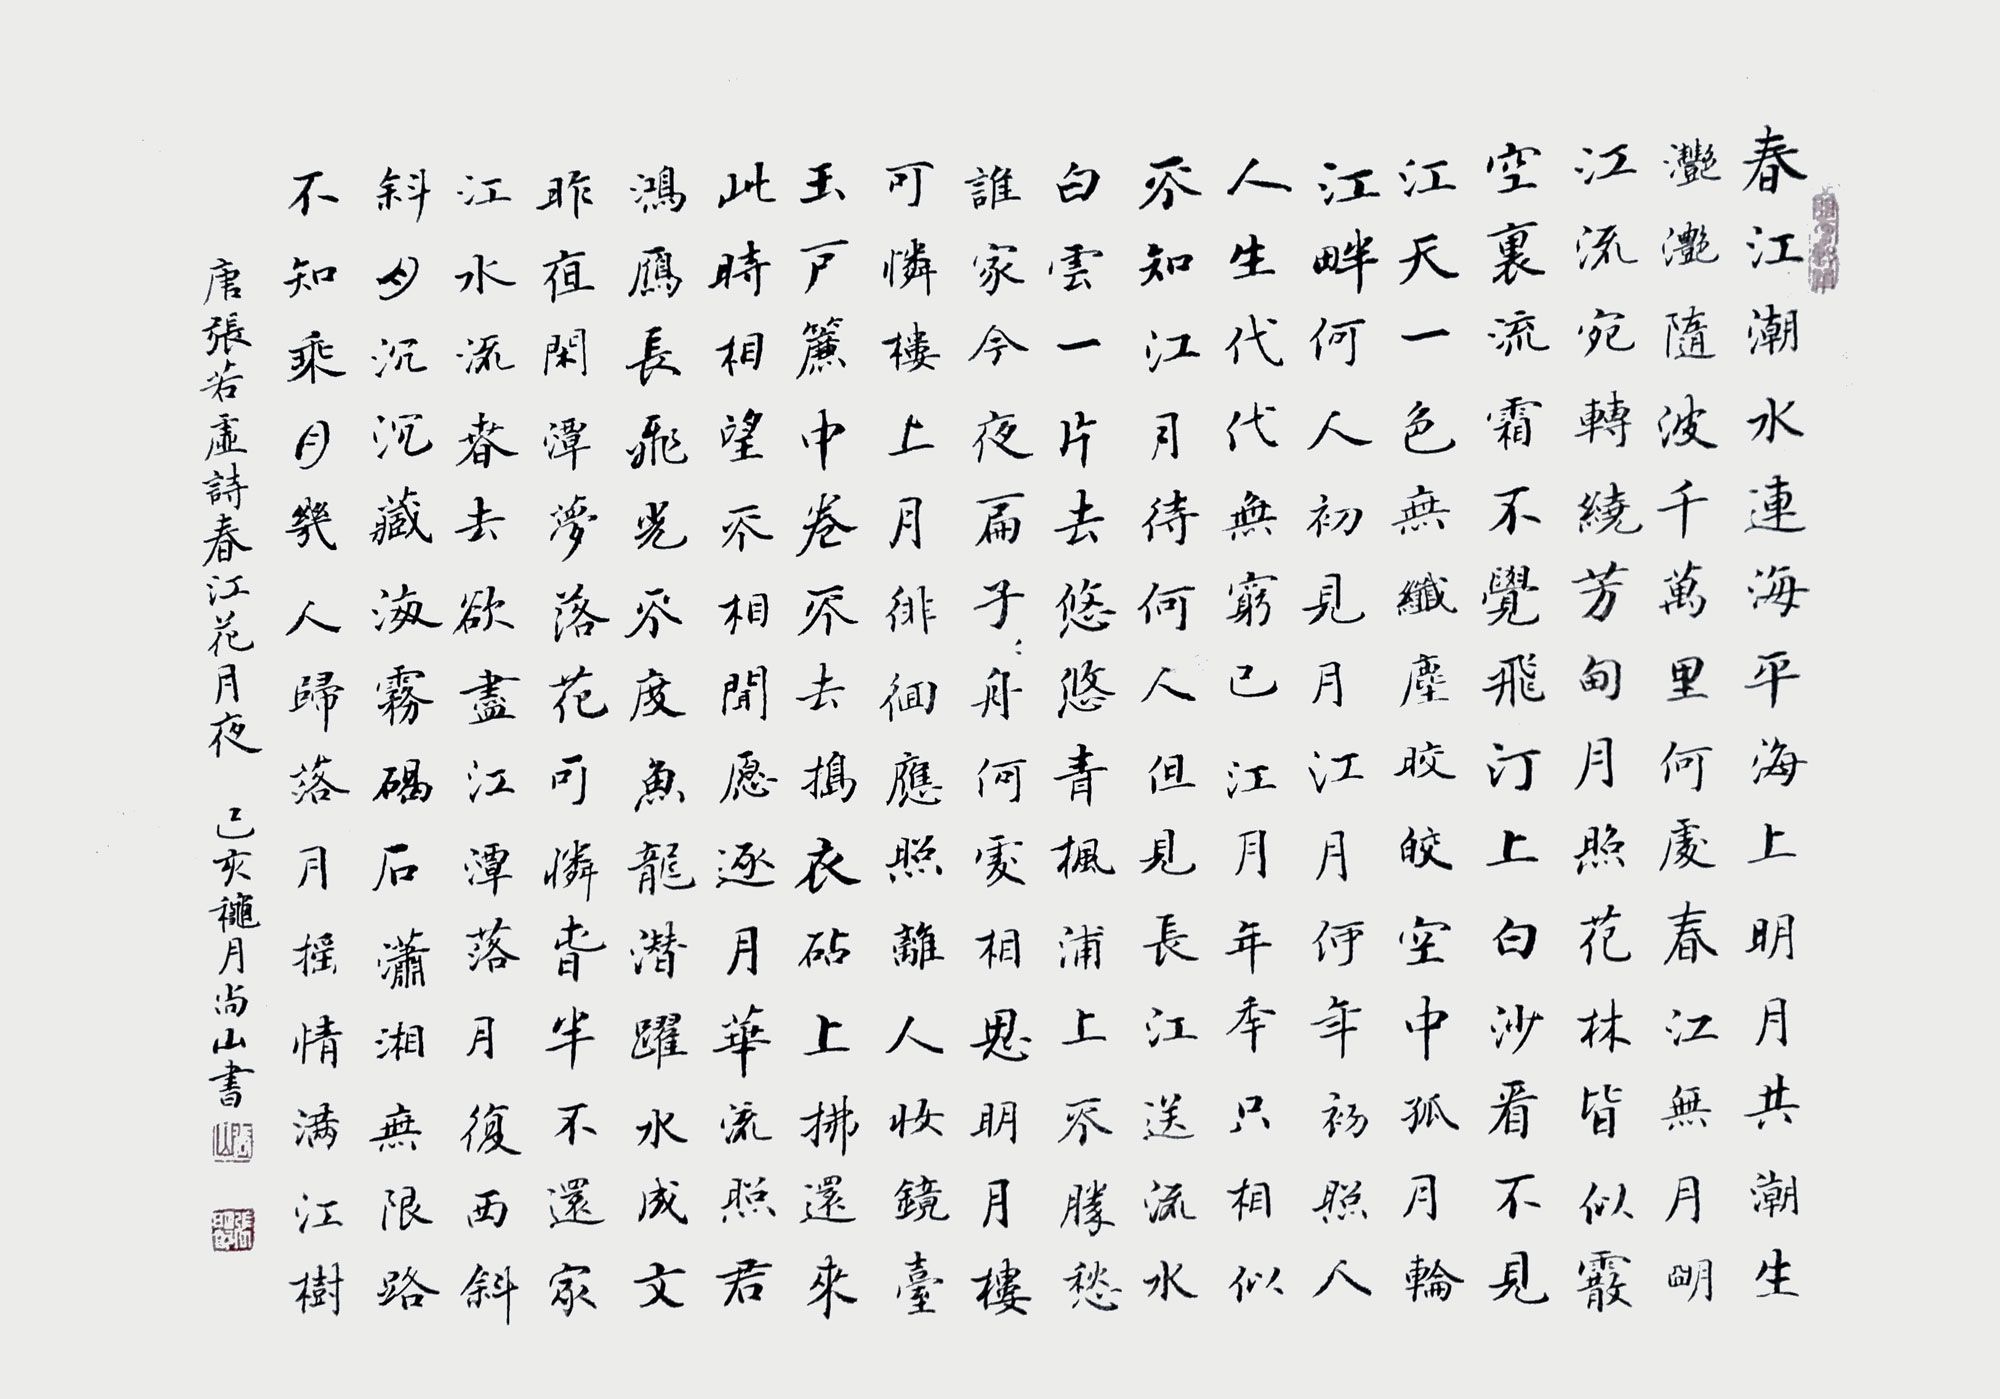 春江潮水連海平海上明月共潮生
灩灩隨波千萬里何處春江無月明
江流宛轉繞芳甸月照花林皆似霰
空裏流霜不覺飛汀上白沙看不見
江天一色無纖塵皎皎空中孤月輪
江畔何人初見月江月何年初照人
人生代代無窮已江月年年只相似
不知江月待何人但見長江送流水
白雲一片去悠悠青楓浦上不勝愁
誰家今夜扁子舟何處相思明月樓
可憐樓上月徘徊應照離人妝鏡臺
玉戶簾中卷不去搗衣砧上拂還來
此時相望不相聞愿逐月華流照君
鴻鴈長飛光不度魚龍潛躍水成文
昨夜閑潭夢落花可憐春半不還家
江水流春去欲盡江潭落月復西斜
斜月沉沉藏海霧碣石瀟湘無限路
不知乘月幾人歸落月搖情滿江樹
唐張若虛詩春江花月夜 己亥龝月尚山書